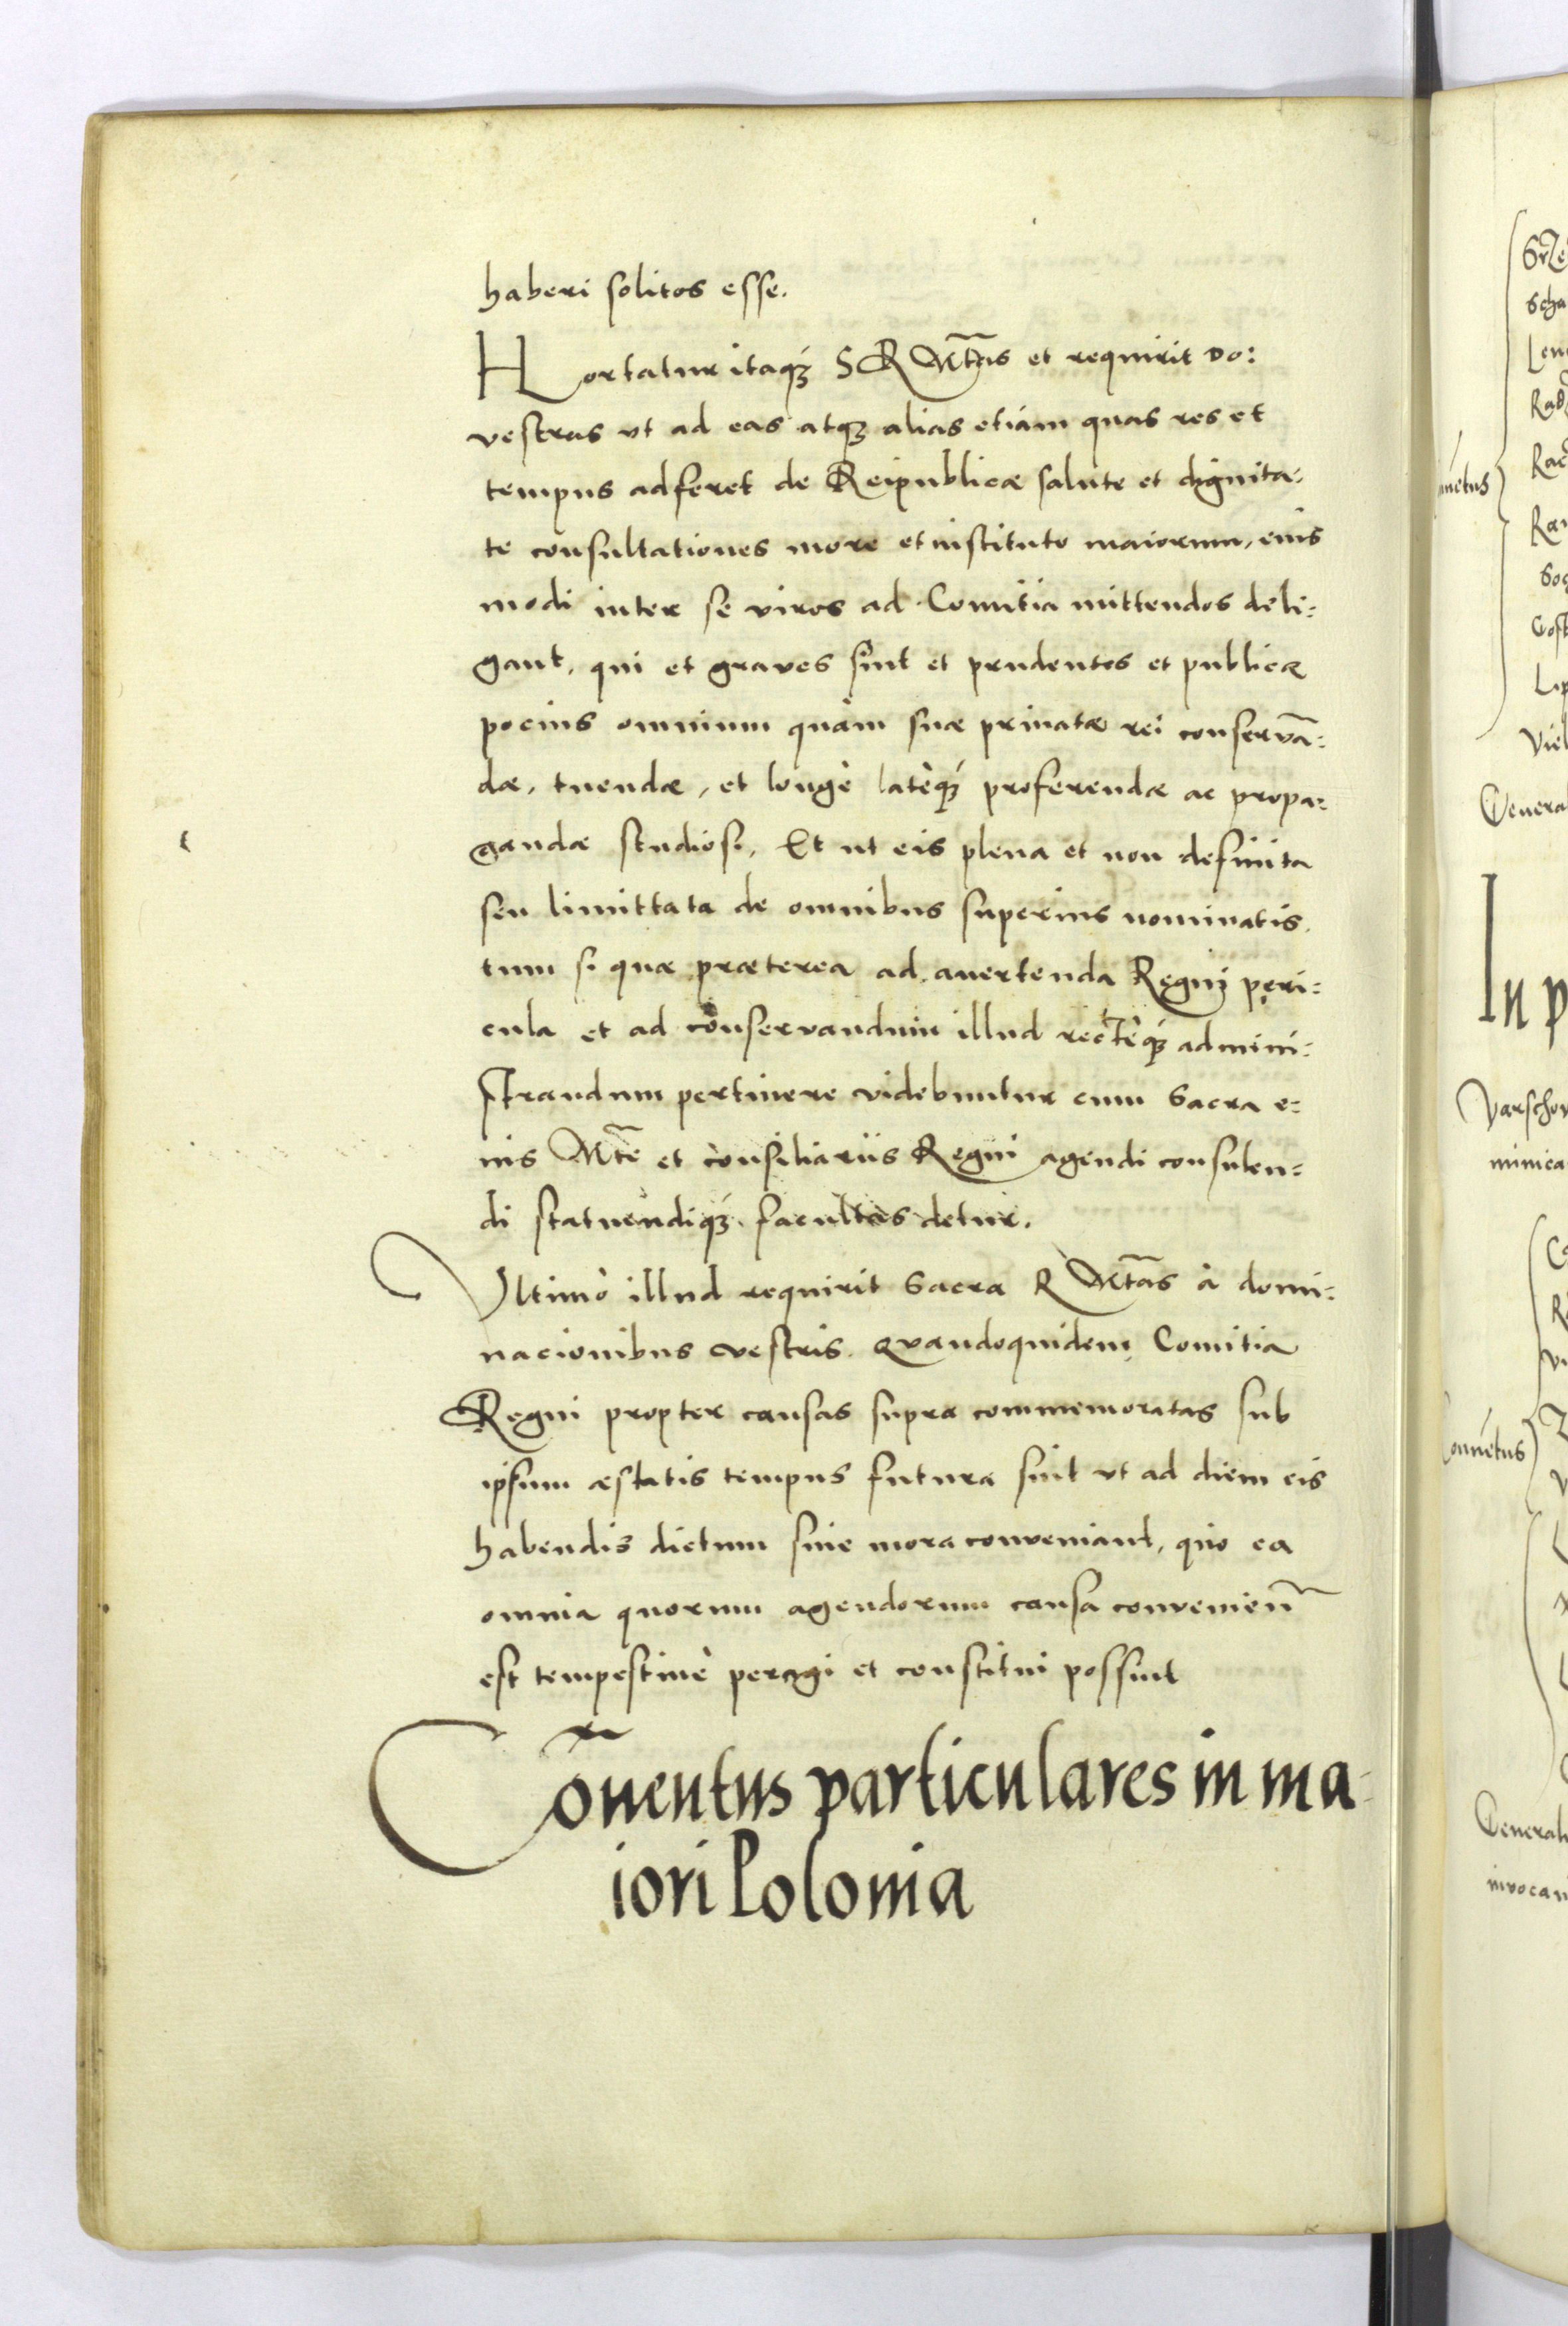 haberi solitos esse.
Hortatur itaq₃ S R Mt̃as et requirit Do:
vestras vt ad eas atq₃ alias etiam quas res et
tempus adferet de Reipublicæ salute et dignita-
te consultationes more et instituto maiorum, eius
modi inter se viros ad Comitia mittendos deli-
gant, qui et graves sint et prudentes et publicæ
pocius omnium quàm suæ privatæ rei conservã-
dæ, tuendæ, et longè latèq₃ proferendæ ac propa-
gandæ studiosi, Et ut eis plena et non definita
seu limittata de omnibus superius nominatis,
tum si quæ præterea ad avertenda Regni peri-
cula et ad conservandum illud rectèq₃ admini-
strandum pertinere videbuntur cum Sacra e-
ius Mt̃e et consiliariis Regni agendi consulen-
di statuendiq₃ facultas detur.
Vltimò illud requirit Sacra R Mt̃as à domi-
nacionibus vestris. Quandoquidem Comitia
Regni propter causas supra commemoratas sub
ipsum æstatis tempus futura sint vt ad diem eis
habendis dictum sine mora conveniant, quo ea
omnia quorum agendorum causa convenienᷓ
est tempestivè peragi et constitui possint
Cõuentus particulares in ma-
iori Polonia
General
In p
Varschov
minica
Conuẽtus
Generali
invocav